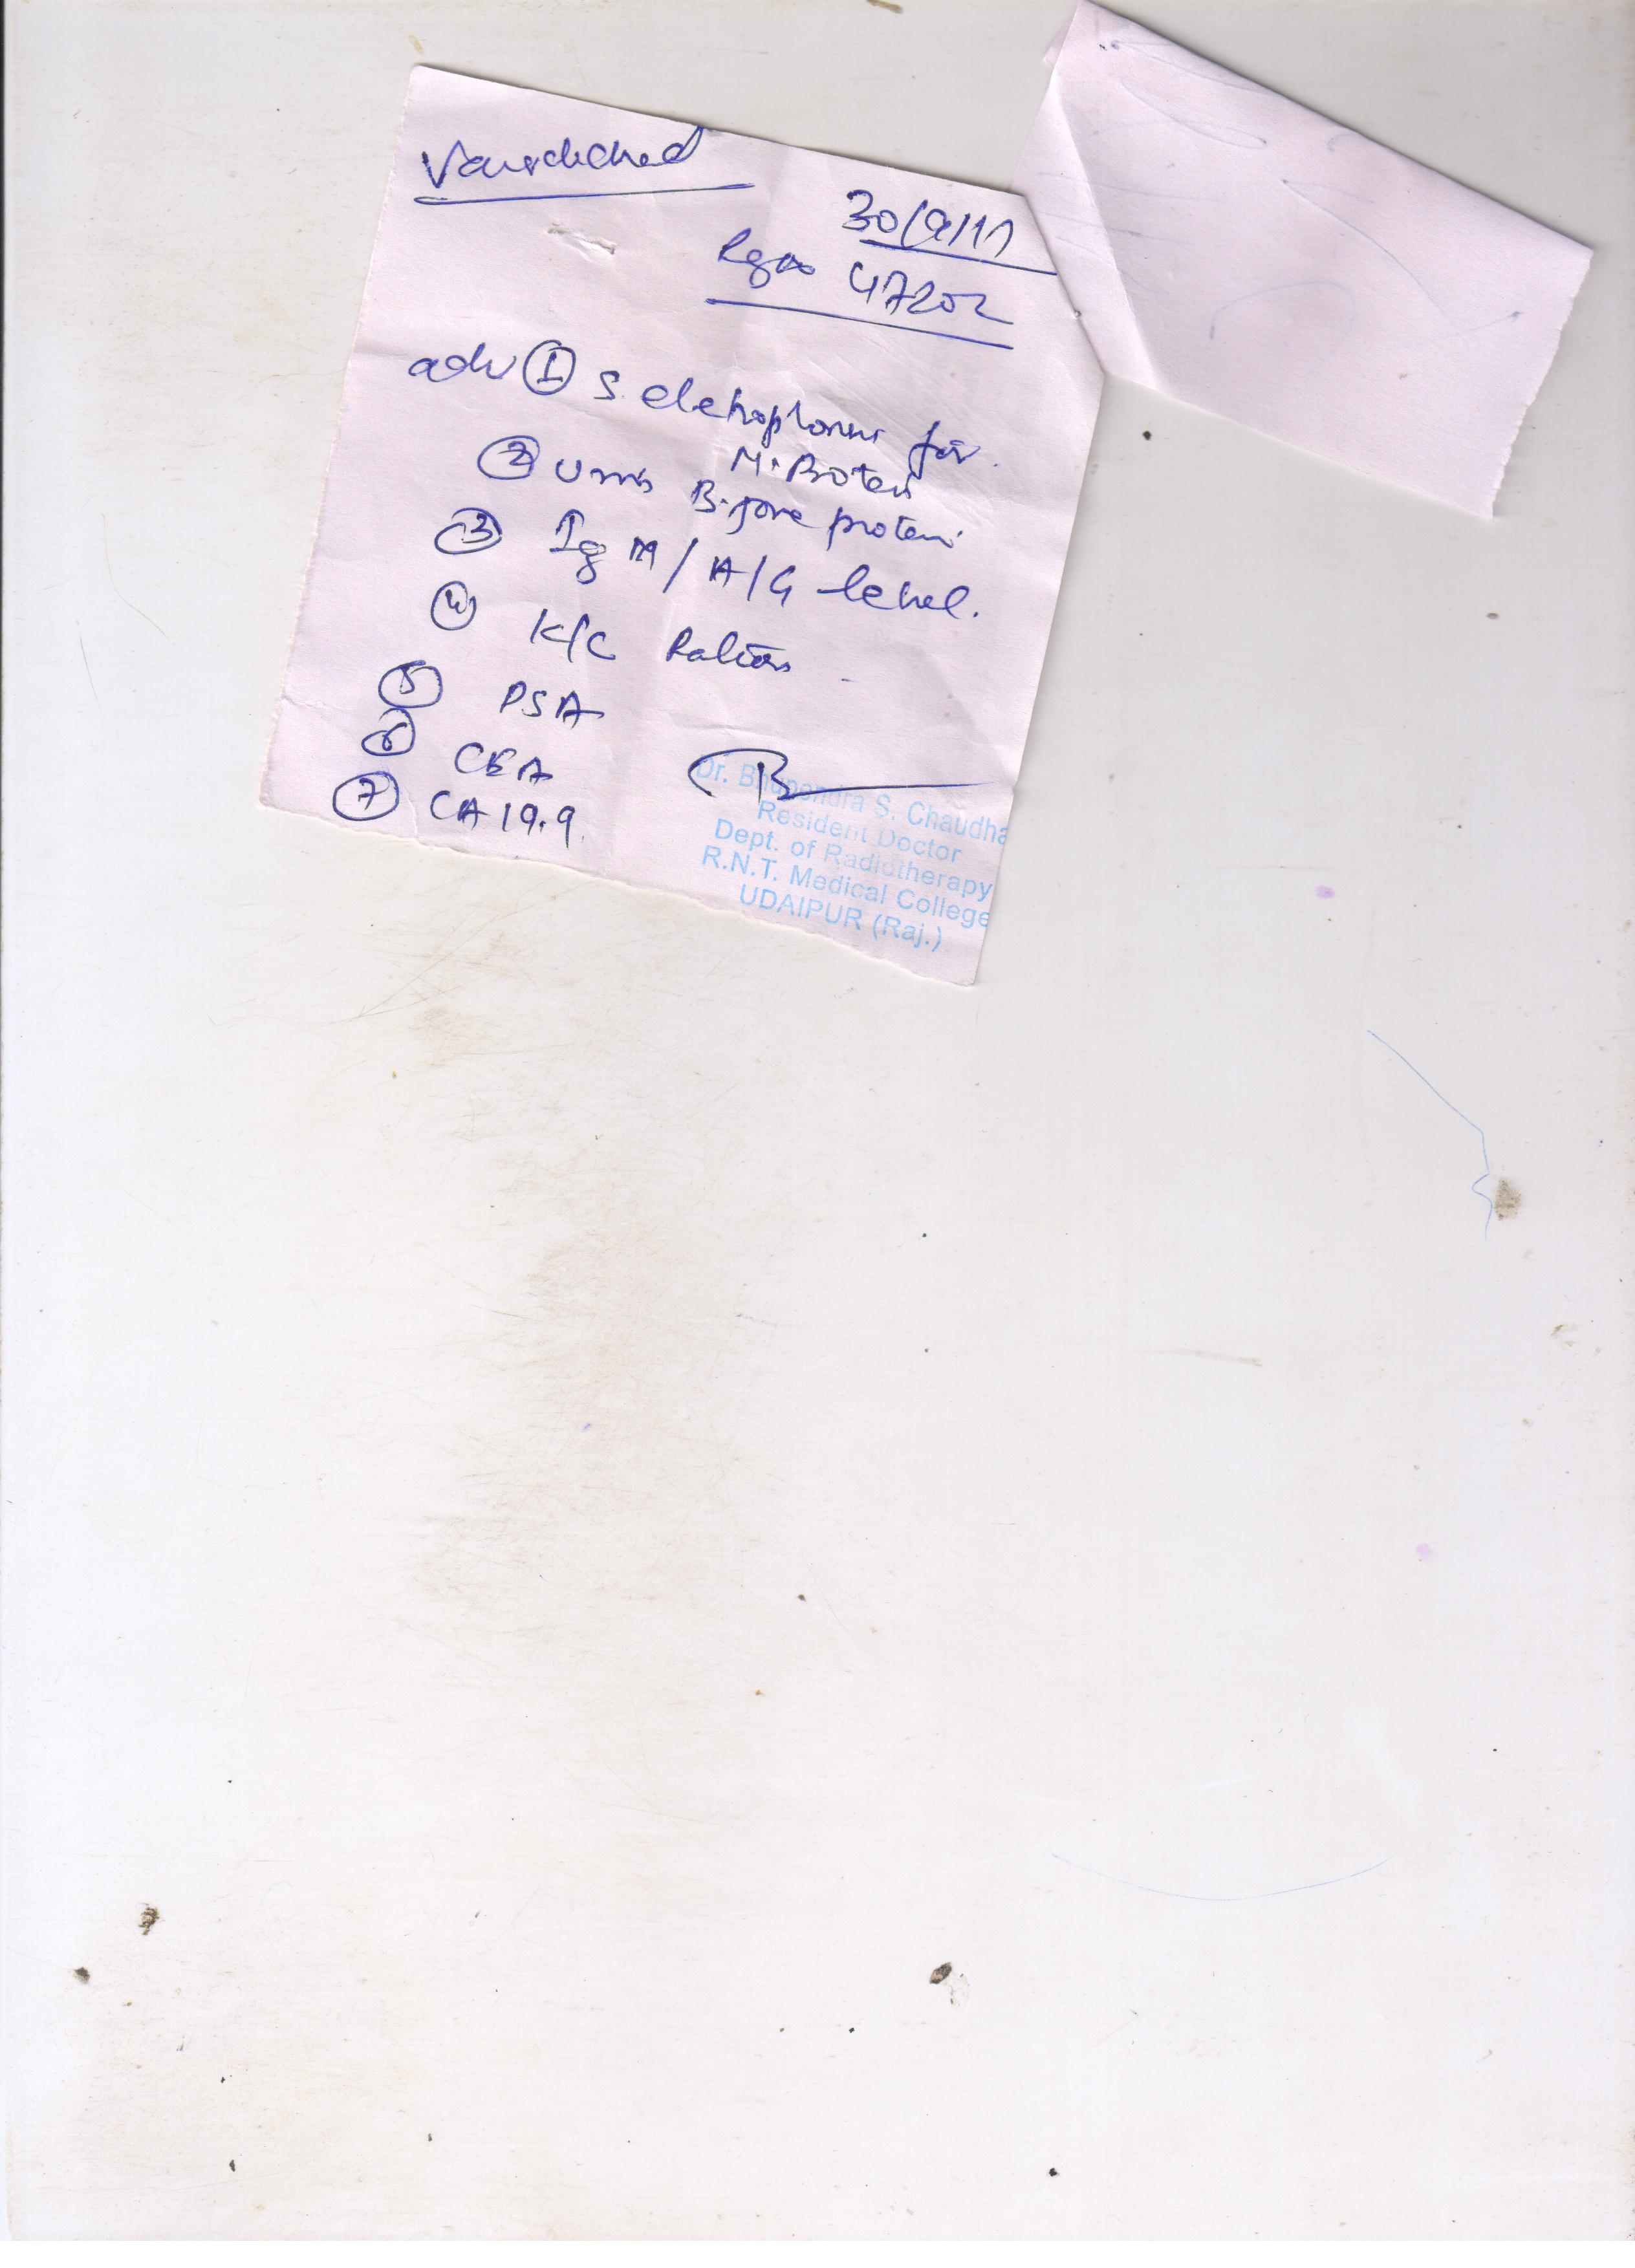 30/9/11
47202
adv ① S. eletrophorus for.
M. Protein
② Urin B. jone protein
③ Ig M / A / G level.
④ K/C Ration
⑤ PSA
⑥ CEA
⑦ CA 19.9
Dr. Bhupendra S. Chaudha
Resident Doctor
Dept. of Radiotherapy
R.N.T. Medical College
UDAIPUR (Raj.)